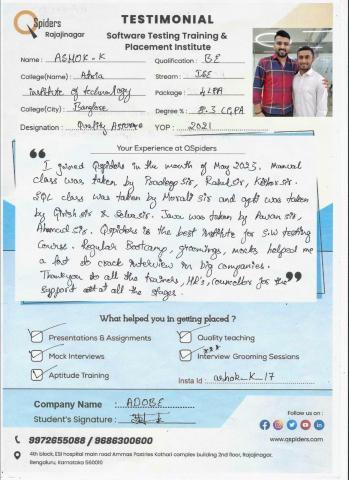 QSpiders
Rajajinagar
TESTIMONIAL
Software Testing Training &
Placement Institute
Name : ASHOK-K
Qualification : BE
College(Name) : Atria
Stream : ISE
institute of technology
Package : 4 LPA
College(City) : Banglore
Degree % : 8.3 CGPA
Designation : Quality
YOP : 2021
Your Experience at QSpiders
I joined Qspiders in the month of May 2023. Manual
class was taken by Pradeep sir, Rahul sir, Kishor sir.
SQL class was taken by Murali sir and apti was taken
by Girish sir & Selva sir. Java was taken by Pavan sir,
Ahamad sir. Qspiders is the best institute for S.W testing
Course. Regular Bootcamp, groomings, mocks helped me
a lot to crack interview in big companies.
Thankyou to all the trainers, HR's, councellor for the
Support at all the stages.
What helped you in getting placed ?
Presentations & Assignments
Quality teaching
Mock Interviews
Interview Grooming Sessions
Aptitude Training
Insta Id : ashok_K_17
Company Name : ADOBE
Student's Signature :
Follow us on :
9972655088 / 9686300600
www.qspiders.com
4th block, ESI hospital main road Ammas Pastries Kothari complex building 2nd floor, Rajajinagar,
Bengaluru, Karnataka 560010